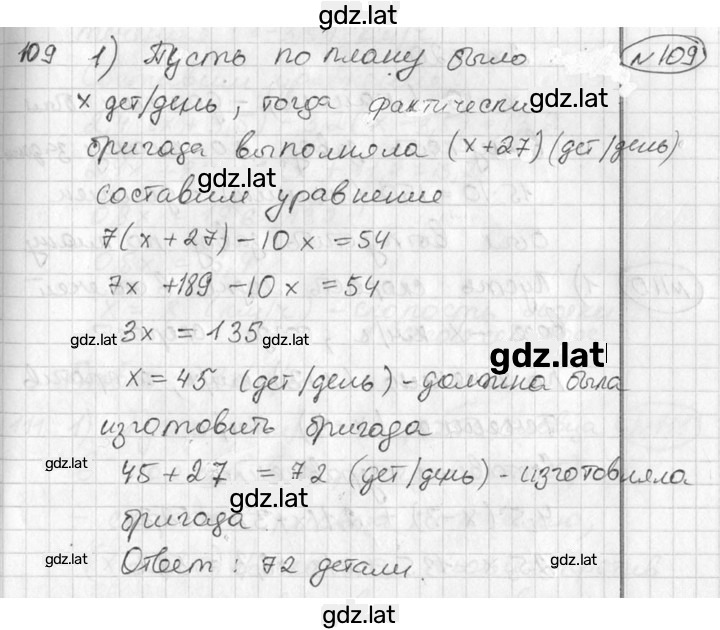 gdz.lat
109 1) Пусть по плану было №109
х дет/день, тогда фактически
gdz.lat
бригада выполняла (х+27)(дет/день)
gdz.lat
составим уравнение
7(х+27)-10х=54
7х+189-10х=54
gdz.lat 3х=135 gdz.lat
gdz.lat
х=45 (дет/день)-должна была
изготовить бригада
gdz.lat 45+27=72 (дет/день)-изготовляла
gdz.lat
бригада
gdz.lat Ответ: 72 детали. gdz.lat
gdz.lat